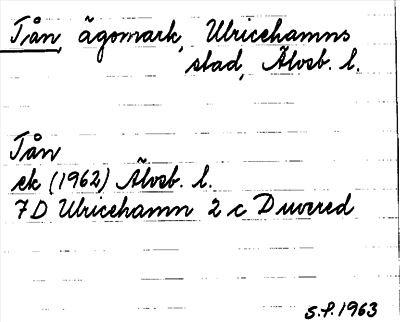 Tån, ägomark, Ulricehamns
stad, Älvsb. l.
Tån
ek (1962) Älvsb. l.
7D Ulricehamn 2 c Duvered
S.F. 1963